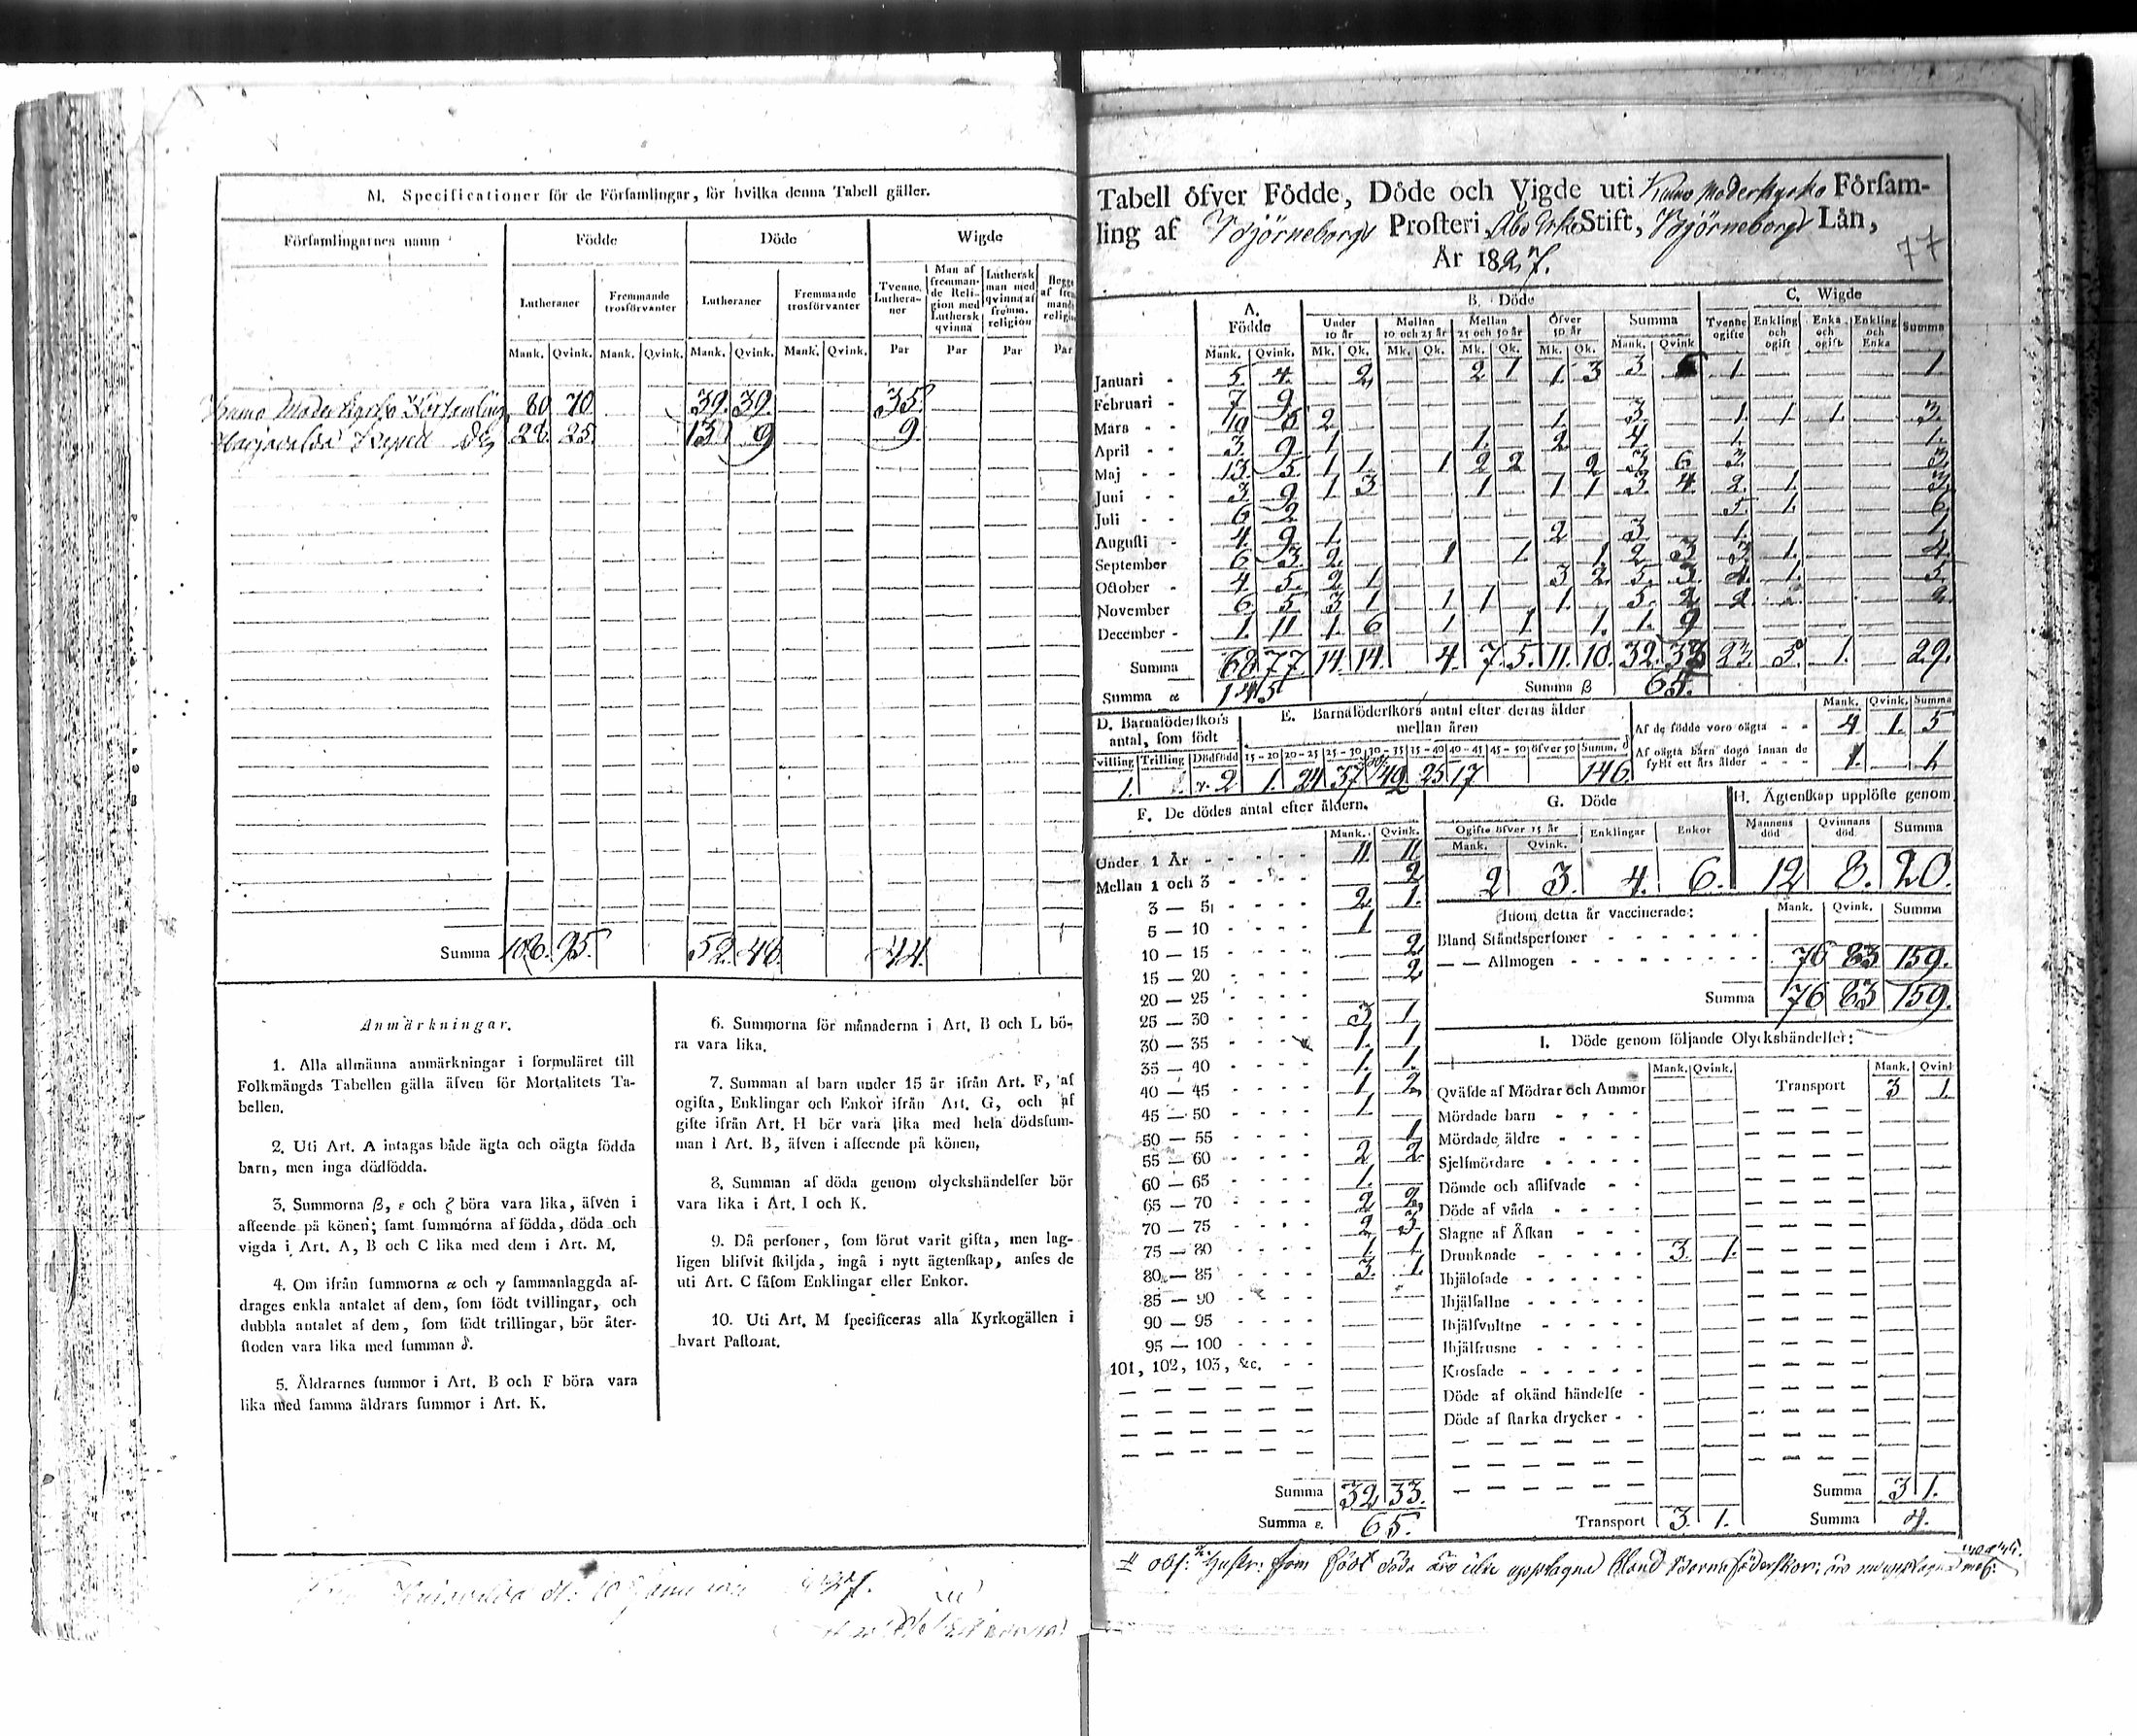 M. Specificationer för de Församlingar, för hvilka denna Tabell gäller.
Församlingarnes namn Födde Döde Wigde
Lutheraner Fremmande trosförvanter Lutheraner Fremmande trosförvanter Tvenne Lutheraner Man af fremmande Religion med Luthersk qvinna Luthersk man med qvinna af fremm. religion
Mank. Qvink. Mank. Qvink. Mank. Qvink. Mank. Qvink. Par Par Par Par
Kumo Moderkyrko Församling 80 70 39. 39. 35.
Harjavalda Kapell 28. 25. 13 9 9
Summa 108. 95. 52. 48. 44.
Anmärkningar.
1. Alla allmänna anmärkningar i formuläret till
Folkmängds Tabellen gälla äfven för Mortalitets Ta-
bellen.
2. Uti Art. A intagas både ägta och oägta födda
barn, men inga dödfödda.
3. Summorna ß, ε och ζ böra vara lika, äfven i
afseende på könen; samt summorna af födda, döda och
vigda i Art. A, B och C lika med dem i Art. M.
4. Om ifrån summorna α och γ sammanlaggda af-
drages enkla antalet af dem, som födt tvillingar, och
dubbla antalet af dem, som födt trillingar, bör åter-
stoden vara lika med summan δ.
5. Äldrarnes summor i Art. B och F böra vara
lika med samma äldrars summor i Art. K.
6. Summorna för månaderna i Art. B och L bö-
ra vara lika.
7. Summan af barn under 15 år ifrån Art. F, af
ogifta, Enklingar och Enkor ifrån Art. G, och af
gifte ifrån Art. H bör vara lika med hela dödssum-
man i Art. B, äfven i afseende på könen.
8. Summan af döda genom olyckshändelser bör
vara lika i Art. I och K.
9. Då personer, som förut varit gifta, men lag-
ligen blifvit skiljda, ingå i nytt ägtenskap, anses de
uti Art. C såsom Enklingar eller Enkor.
10. Uti Art. M specificeras alla Kyrkogällen i
hvart Pastorat.
Tabell öfver Födde, Döde och Vigde uti Kumo Moderkyrko Försam-
ling af Björneborgs Prosteri, Åbo Erke Stift, Björneborgs Län,
År 1827.
77
A. Födde B. Döde C. Wigde
Under 10 år Mellan 10 och 25 år Mellan 25 och 50 år Öfver 50 år Summa Tvenne ogifte Enkling och ogift Enka och ogift Enkling och Enka Summa
Mank. Qvink. Mk. Qk. Mk. Qk. Mk. Qk. Mk. Qk. Mank. Qvink
Januari 5. 4. 2 2 1 1. 3 3 6 1 1
Februari 7 9
Mars 10 6 2 1. 3. 1. 1 1. 3.
April 3. 9. 1 1. 2 4. 1. 1.
Maj 13. 5. 1 1. 1 2 2 2 3 6 3. 3
Juni 3. 9 1 3 1 1 1 3. 4. 2. 1. 3.
Juli 6 2 5 1. 6.
Augusti 4. 9 1. 2 3 1. 1.
September 6 3. 2. 1 1. 1 2 3 3 1. 4.
October 4 5. 2 1 3 2. 5. 3. 4. 1. 5.
November 6 5 3 1 1 1 1. 5. 2. 2. 2.
December 1. 11 1. 6 1 1. 1. 1. 9
Summa 68 77. 14. 14. 4. 7. 5. 11. 10. 32. 33 23. 5. 1. 29.
Summa α 145 Summa ß 65.
D. Barnaföderskors antal, som födt
Tvilling Trilling Dödfödd
1. γ. 2
E. Barnaföderskors antal efter deras ålder mellan åren
15-20 20-25 25-30 30-35 35-40 40-45 45-50 öfver 50 Summ. δ
1. 24 37 25 17 146.
Mank. Qvink. Summa
Af de födde voro oägta 4 1. 5
Af oägta barn dogo innan de fyllt ett års ålder 1. 1
F. De dödes antal efter åldern.
Mank. Qvink.
Under 1 År 11. 11
Mellan 1 och 3 2
3 — 5 2 1.
5 — 10 1
10 — 15 2
15 — 20 2
20 — 25
25 — 30 3 1
30 — 35 1. 1
35 — 40 1. 1.
40 — 45 1 2
45 — 50 1.
50 — 55 1
55 — 60 2 2
60 — 65 1.
65 — 70 2 2
70 — 75 2 3
75 — 80 1. 1.
80 — 85 3. 1.
85 — 90
90 — 95
95 — 100
101, 102, 103, &c.
Summa 32 33.
Summa ε. 65.
G. Döde
Ogifte öfver 15 år Enklingar Enkor
Mank. Qvink.
2 3. 4. 6.
H. Ägtenskap upplöste genom
Mannens död Qvinnans död. Summa
12 8. 20.
Inom detta år vaccinerade: Mank. Qvink. Summa
Bland Ståndspersoner
— — Allmogen 76 83 159.
Summa 76 83 159.
I. Döde genom följande Olyckshändelser:
Mank. Qvink. Mank. Qvink
Qväfde af Mödrar och Ammor Transport 3 1.
Mördade barn
Mördade äldre
Sjelfmördare
Dömde och aflifvade
Döde af våda
Slagne af Åskan
Drunknade 3. 1.
Ihjälosade
Ihjälfallne
Ihjälsvultne
Ihjälfrusne
Krossade
Döde af okänd händelse
Döde af starka drycker
Summa 3 1.
Transport 3. 1. Summa 4.
obs: som födt döda äro icke upptagna bland Barnaföderskor;